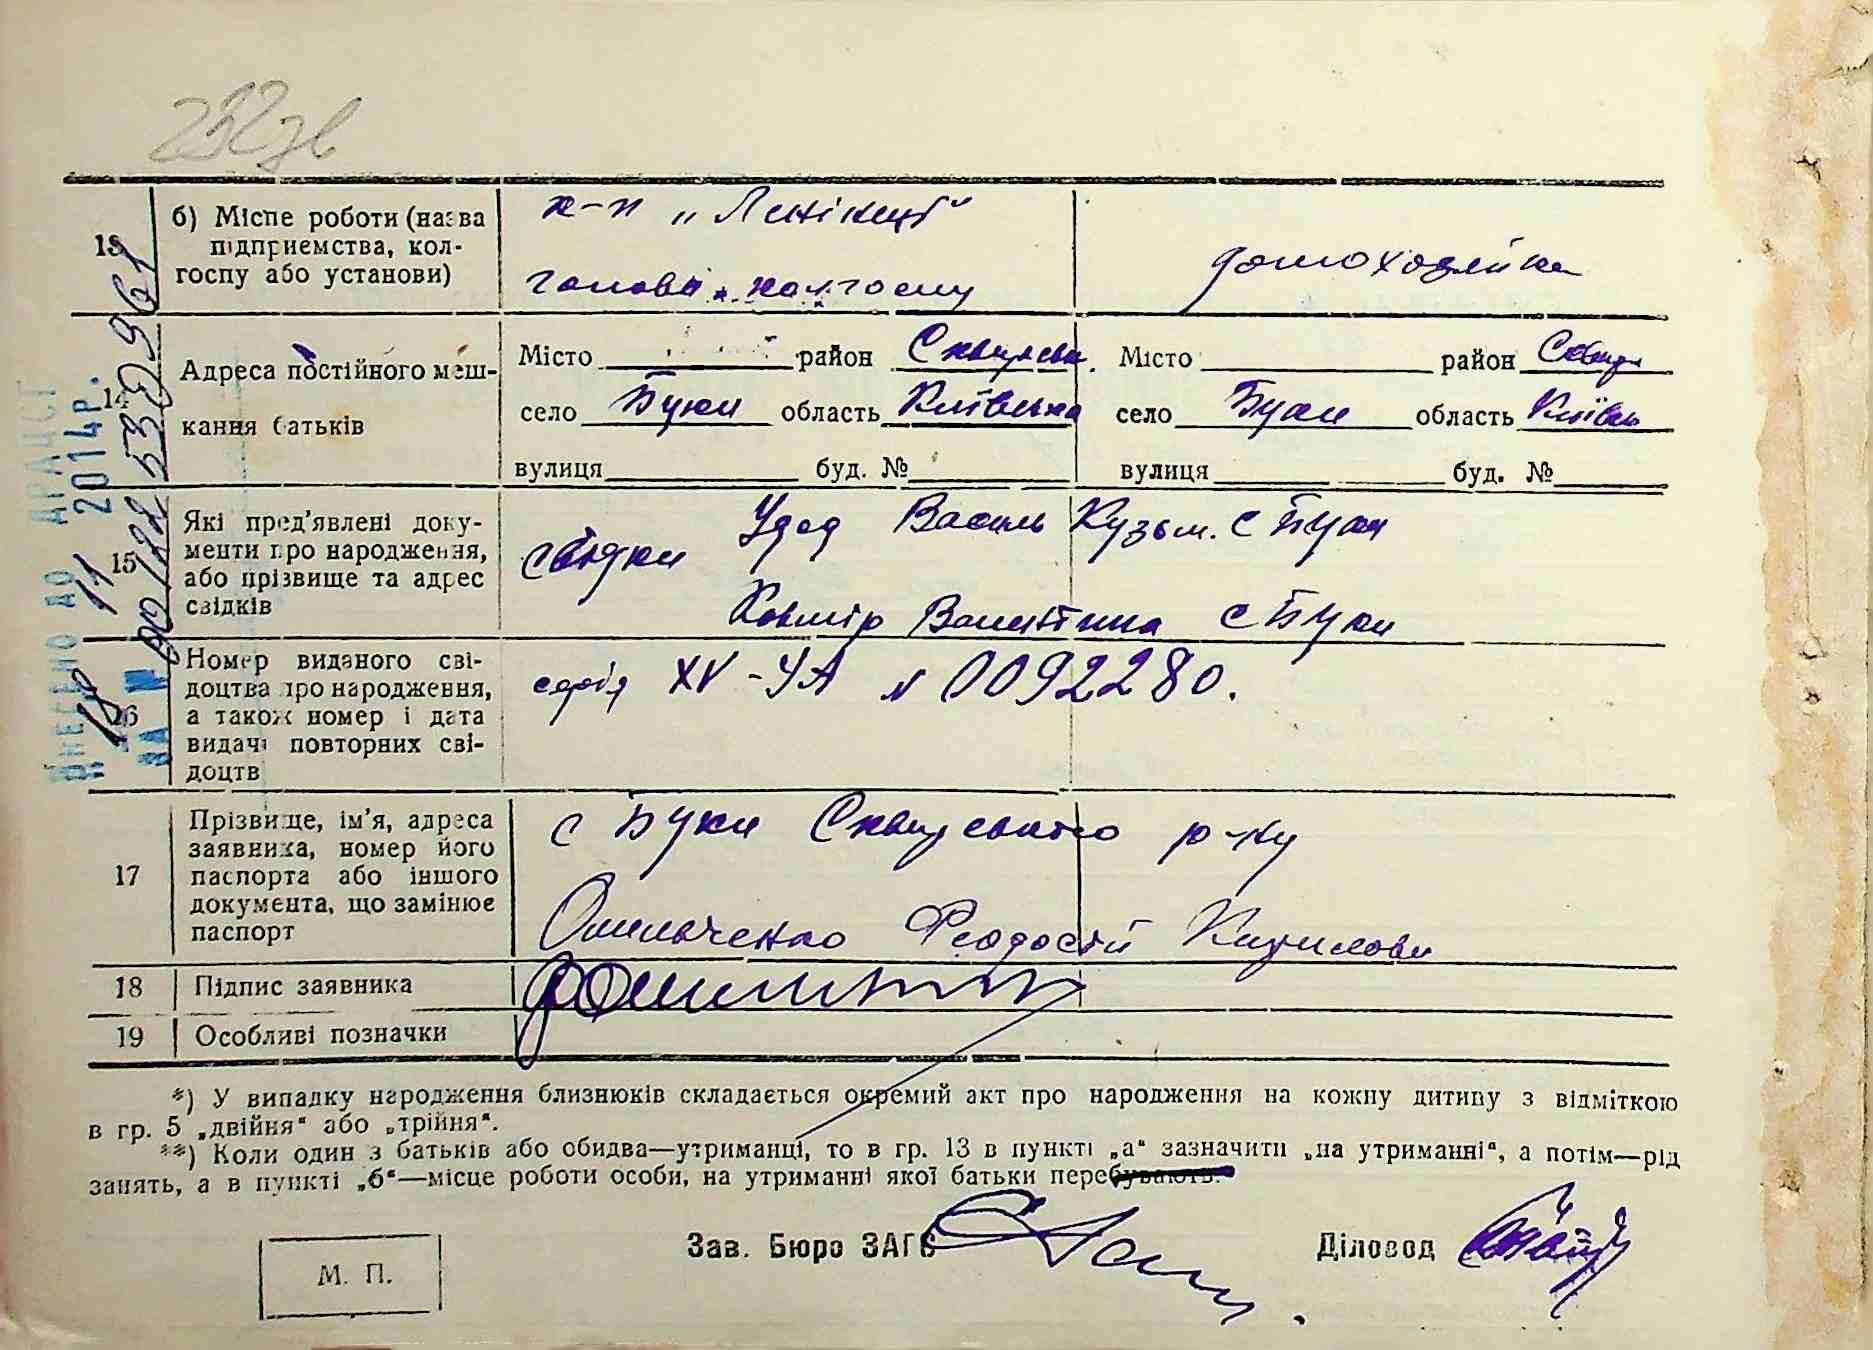 232зв
13 б) Місце роботи (назва підприємства, колгоспу або установи)
к-п „Ленінець"
голова колгоспу
домохозяйка
14 Адреса постійного мешкання батьків
Місто район Сквирськ.
село Буки область Київська
вулиця буд. №
Місто район Сквир
село Буки область Київськ
вулиця буд. №
15 Які пред'явлені документи про народження, або прізвище та адрес свідків
свідки Удод Василь Кузьм. с Буки
Валентина с Буки
16 Номер виданого свідоцтва про народження, а також номер і дата видачі повторних свідоцтв
серія XV-УА N 0092280.
17 Прізвище, ім'я, адреса заявника, номер його паспорта або іншого документа, що замінює паспорт
с Буки Сквирського р-ну
Омельченко Феодосій Кирилови
18 Підпис заявника
19 Особливі позначки
*) У випадку народження близнюків складається окремий акт про народження на кожну дитину з відміткою
в гр. 5 „двійня" або „трійня".
**) Коли один з батьків або обидва—утриманці, то в гр. 13 в пункті „а" зазначити „на утриманні", а потім—рід
занять, а в пункті „б"—місце роботи особи, на утриманні якої батьки перебувають.
М. П.
Зав. Бюро ЗАГС
Діловод
ВНЕСЕНО ДО ДРАЦСГ
18 11 2014р.
ЗА № 00122533961